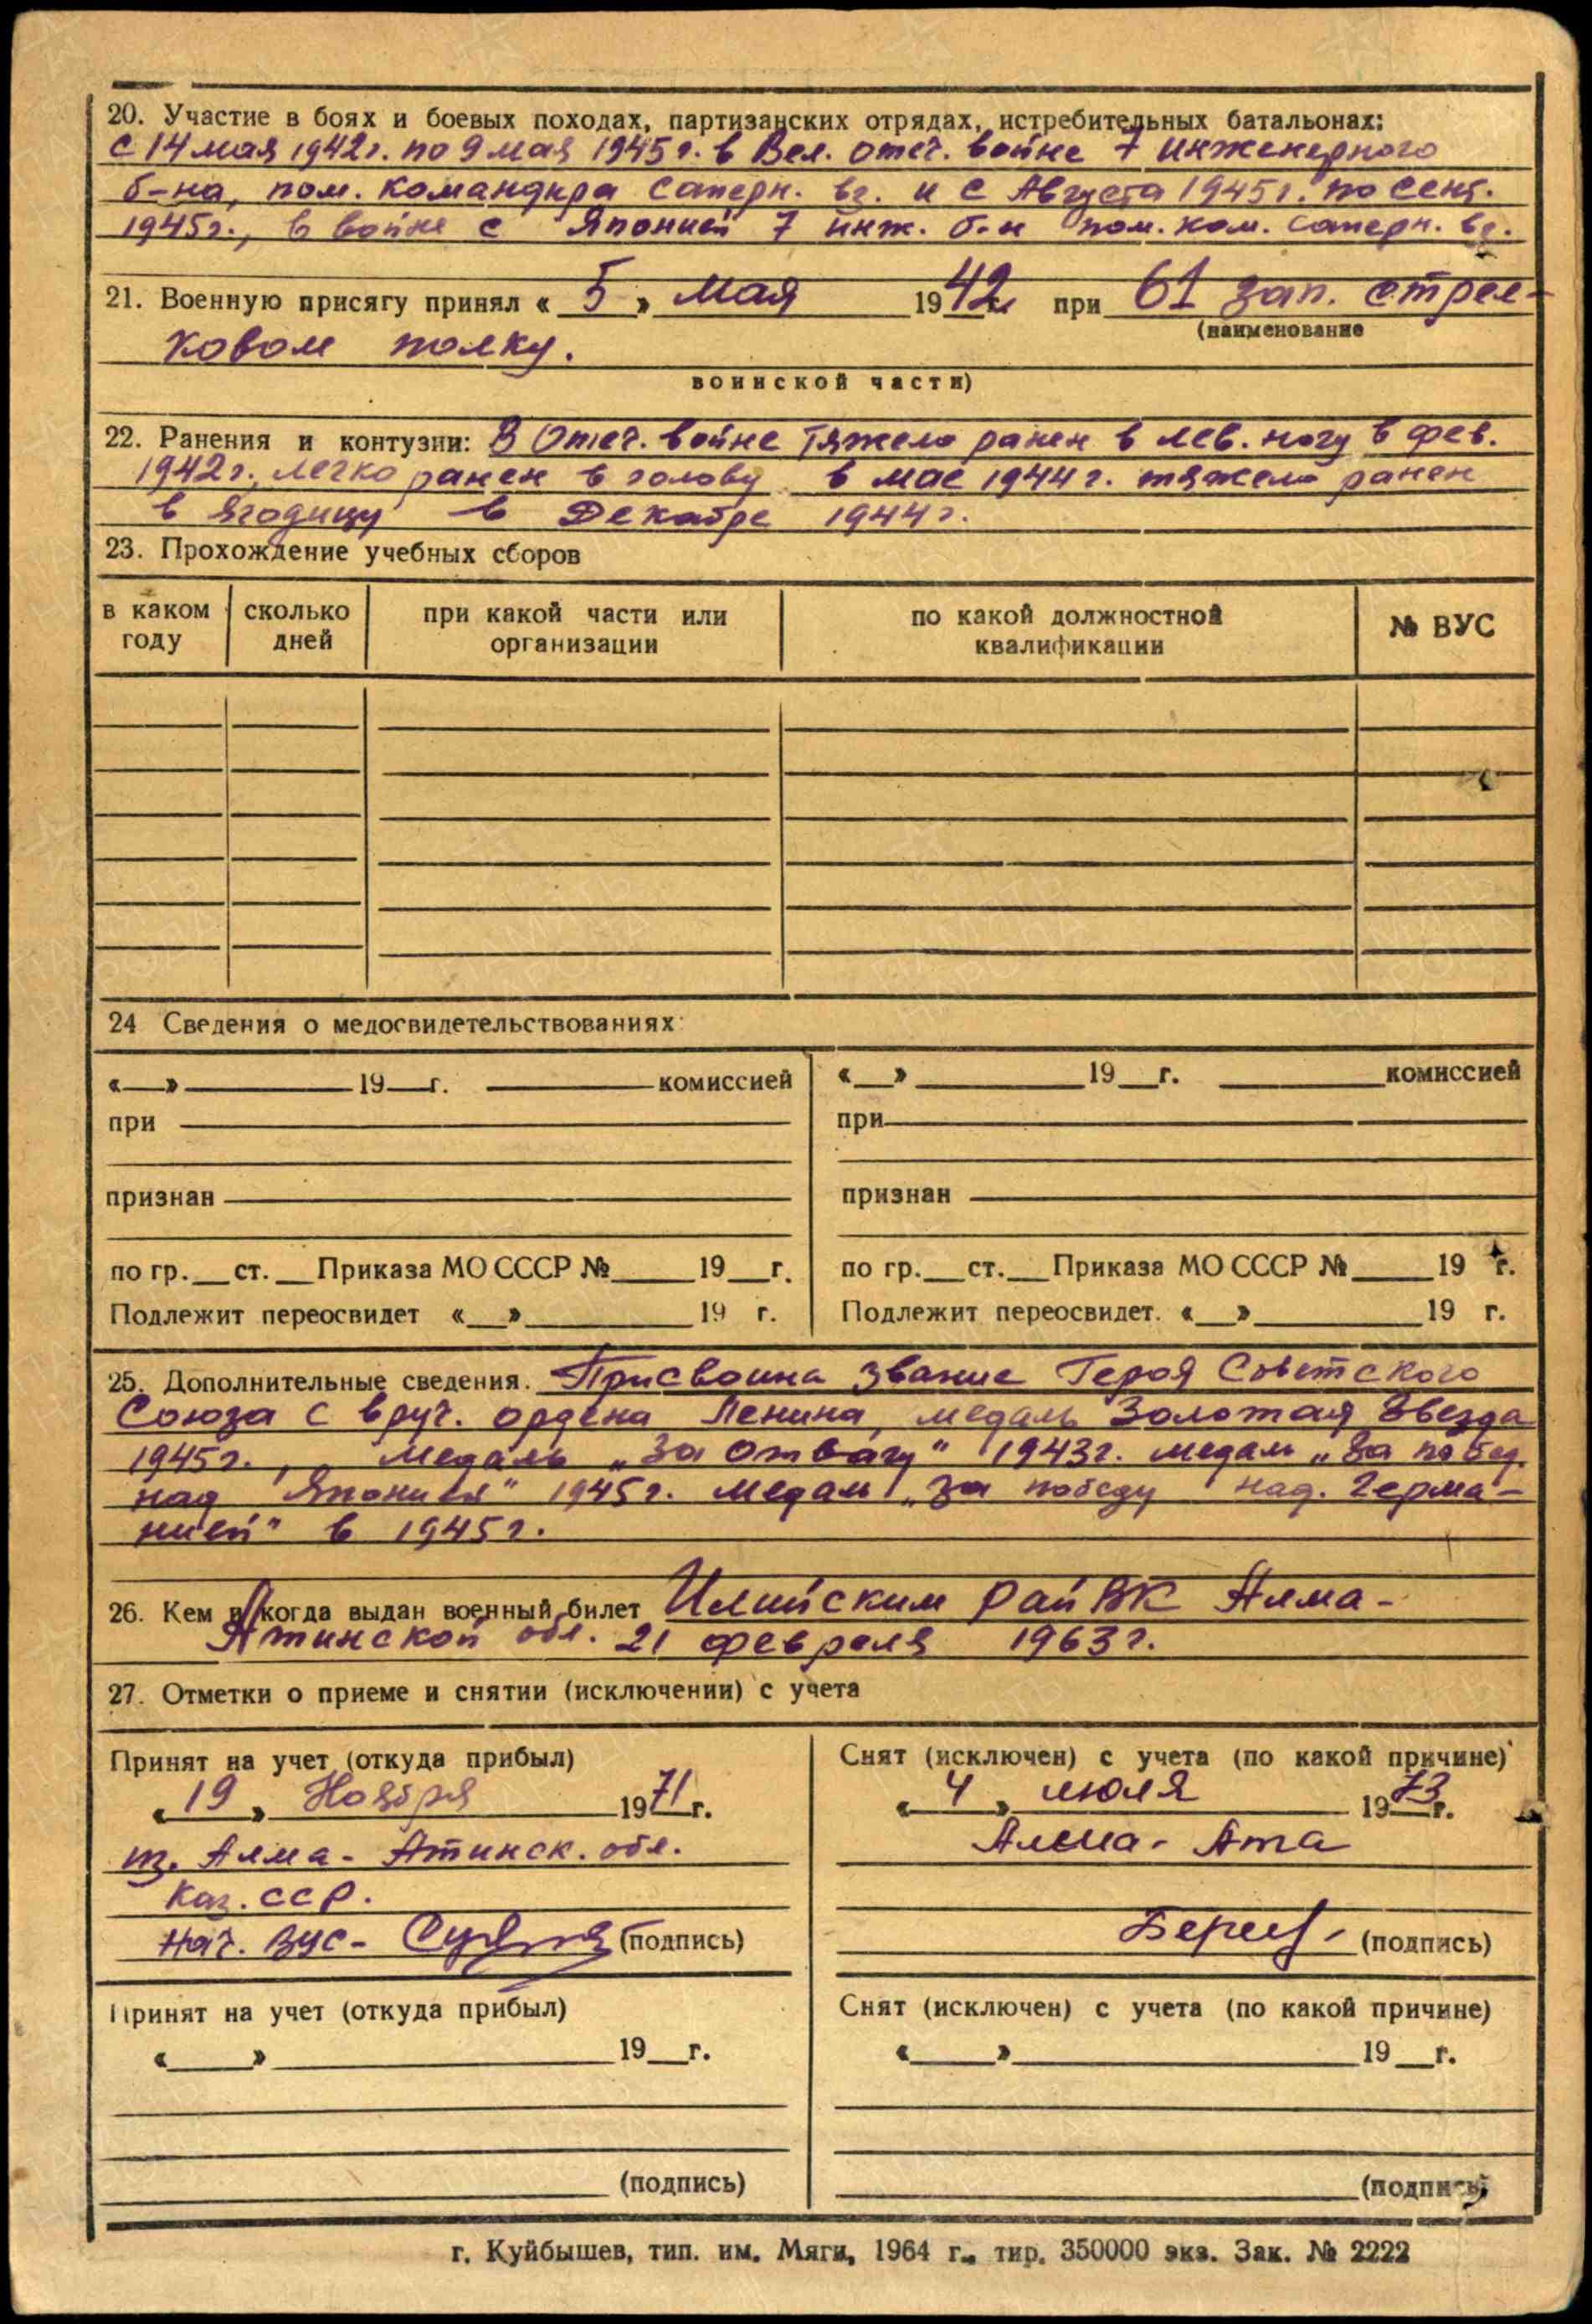 20. Участие в боях и боевых походах, партизанских отрядах, истребительных батальонах:
с 14 мая 1942г. по 9 мая 1945г. в Вел. отеч. войне 7 инженерного
б-на, пом. командира саперн. вз. и с Августа 1945г. по сент.
1945г., в войне с Японией 7 инж. б-н пом. ком. саперн. вз.
21. Военную присягу принял « 5 » Мая 1942г. при 61 зап. стрел-
(наименование
ковом полку.
воинской части)
22. Ранения и контузии: В Отеч. войне тяжело ранен в лев. ногу в фев.
1942г., легко ранен в голову в мае 1944г. тяжело ранен
в ягодицу в Декабре 1944г.
23. Прохождение учебных сборов
в каком году сколько дней при какой части или организации по какой должностной квалификации № ВУС
24 Сведения о медосвидетельствованиях:
«__» ____ 19__г. ____ комиссией «__» ____ 19__г. ____ комиссией
при при
признан признан
по гр.__ст.__Приказа МО СССР №____19__г. по гр.__ст.__Приказа МО СССР №____19 г.
Подлежит переосвидет «__»____19 г. Подлежит переосвидет. «__»____19 г.
25. Дополнительные сведения. Присвоина звание Героя Советского
Союза с вруч. ордена Ленина, медаль Золотая Звезда
1945г., медаль „За отвагу" 1943г. медаль „За побед.
над Японией" 1945г. медаль „За победу над. Герма-
нией" в 1945г.
26. Кем и когда выдан военный билет Илийским РайВК Алма-
Атинской обл. 21 февраля 1963г.
27. Отметки о приеме и снятии (исключении) с учета
Принят на учет (откуда прибыл) Снят (исключен) с учета (по какой причине)
« 19 » Ноября 1971г. « 4 » июля 1973г.
из. Алма-Атинск. обл. Алма-Ата
Каз. ССР.
Нач. ВУС- (подпись) (подпись)
Принят на учет (откуда прибыл) Снят (исключен) с учета (по какой причине)
«____»____19__г. «____»____19__г.
(подпись) (подпись)
г. Куйбышев, тип. им. Мяги, 1964 г., тир. 350000 экз. Зак. № 2222